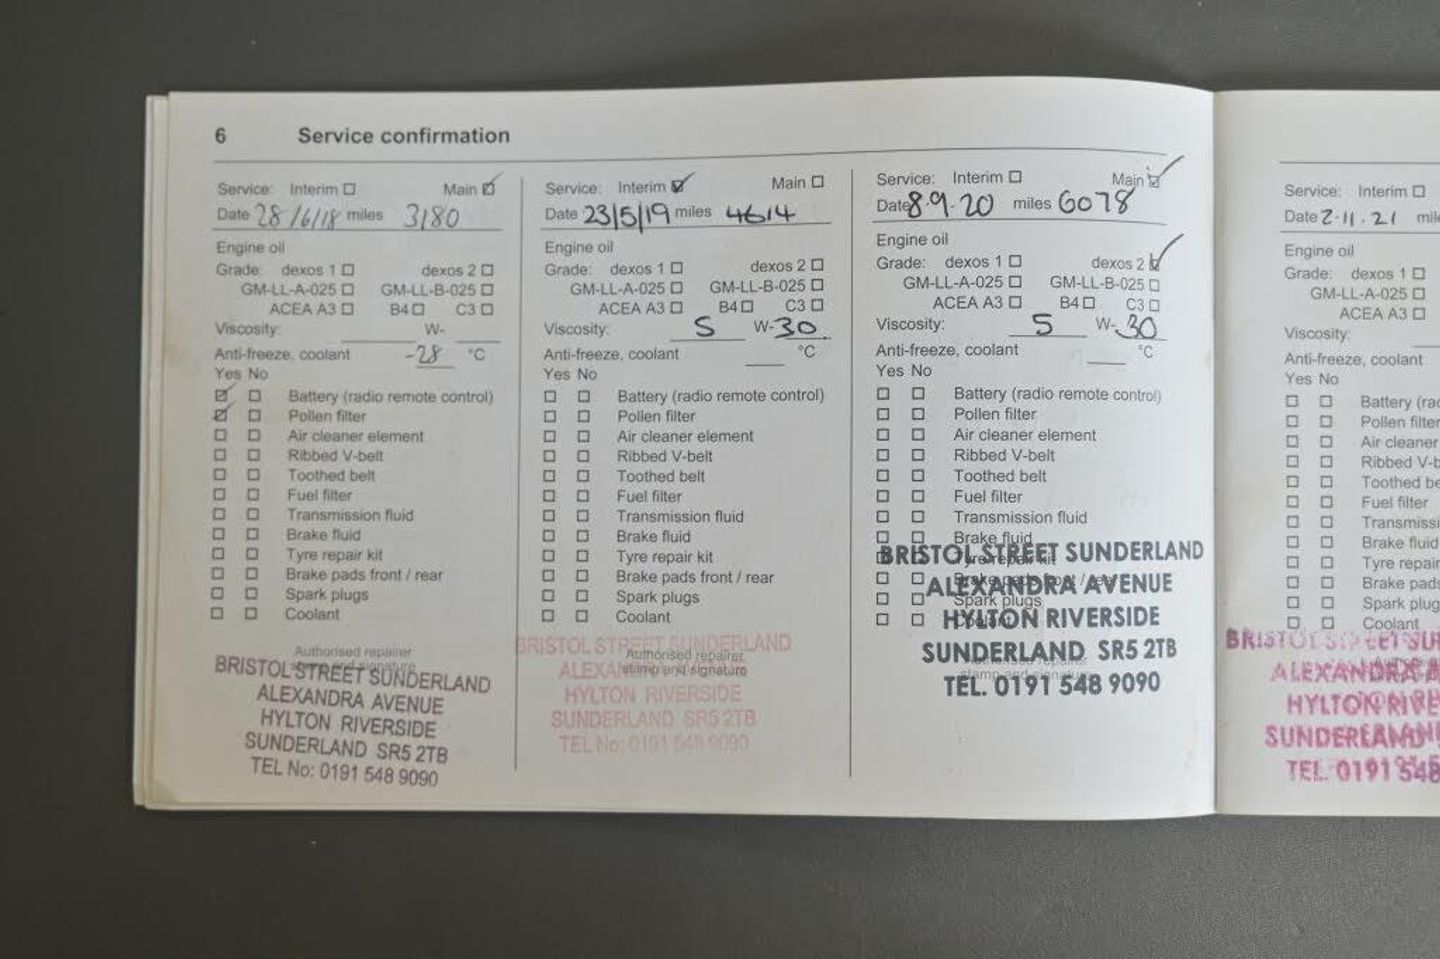 6 Service confirmation
Service: Interim ☐ Main ☑
Date 28/6/18 miles 3180
Engine oil
Grade: dexos 1 ☐ dexos 2 ☐
GM-LL-A-025 ☐ GM-LL-B-025 ☐
ACEA A3 ☐ B4 ☐ C3 ☐
Viscosity: W-
Anti-freeze, coolant -28 °C
Yes No
☑ ☐ Battery (radio remote control)
☑ ☐ Pollen filter
☐ ☐ Air cleaner element
☐ ☐ Ribbed V-belt
☐ ☐ Toothed belt
☐ ☐ Fuel filter
☐ ☐ Transmission fluid
☐ ☐ Brake fluid
☐ ☐ Tyre repair kit
☐ ☐ Brake pads front / rear
☐ ☐ Spark plugs
☐ ☐ Coolant
Authorised repairer
stamp and signature
BRISTOL STREET SUNDERLAND
ALEXANDRA AVENUE
HYLTON RIVERSIDE
SUNDERLAND SR5 2TB
TEL No: 0191 548 9090
Service: Interim ☑ Main ☐
Date 23/5/19 miles 4614
Engine oil
Grade: dexos 1 ☐ dexos 2 ☐
GM-LL-A-025 ☐ GM-LL-B-025 ☐
ACEA A3 ☐ B4 ☐ C3 ☐
Viscosity: 5 W-30
Anti-freeze, coolant °C
Yes No
☐ ☐ Battery (radio remote control)
☐ ☐ Pollen filter
☐ ☐ Air cleaner element
☐ ☐ Ribbed V-belt
☐ ☐ Toothed belt
☐ ☐ Fuel filter
☐ ☐ Transmission fluid
☐ ☐ Brake fluid
☐ ☐ Tyre repair kit
☐ ☐ Brake pads front / rear
☐ ☐ Spark plugs
☐ ☐ Coolant
Authorised repairer
stamp and signature
BRISTOL STREET SUNDERLAND
ALEXANDRA AVENUE
HYLTON RIVERSIDE
SUNDERLAND SR5 2TB
TEL No: 0191 548 9090
Service: Interim ☐ Main ☑
Date 8.9.20 miles 6078
Engine oil
Grade: dexos 1 ☐ dexos 2 ☑
GM-LL-A-025 ☐ GM-LL-B-025 ☐
ACEA A3 ☐ B4 ☐ C3 ☐
Viscosity: 5 W-30
Anti-freeze, coolant °C
Yes No
☐ ☐ Battery (radio remote control)
☐ ☐ Pollen filter
☐ ☐ Air cleaner element
☐ ☐ Ribbed V-belt
☐ ☐ Toothed belt
☐ ☐ Fuel filter
☐ ☐ Transmission fluid
☐ ☐ Brake fluid
☐ ☐ Tyre repair kit
☐ ☐ Brake pads front / rear
☐ ☐ Spark plugs
☐ ☐ Coolant
Authorised repairer
stamp and signature
BRISTOL STREET SUNDERLAND
ALEXANDRA AVENUE
HYLTON RIVERSIDE
SUNDERLAND SR5 2TB
TEL. 0191 548 9090
Service: Interim ☐
Date 2.11.21 mil
Engine oil
Grade: dexos 1 ☐
GM-LL-A-025 ☐
ACEA A3 ☐
Viscosity:
Anti-freeze, coolant
Yes No
☐ ☐ Battery (rad
☐ ☐ Pollen filter
☐ ☐ Air cleaner
☐ ☐ Ribbed V-b
☐ ☐ Toothed be
☐ ☐ Fuel filter
☐ ☐ Transmissi
☐ ☐ Brake fluid
☐ ☐ Tyre repair
☐ ☐ Brake pads
☐ ☐ Spark plug
☐ ☐ Coolant
BRISTOL STREET SU
ALEXANDRA
HYLTON RIVE
SUNDERLAND
TEL. 0191 548